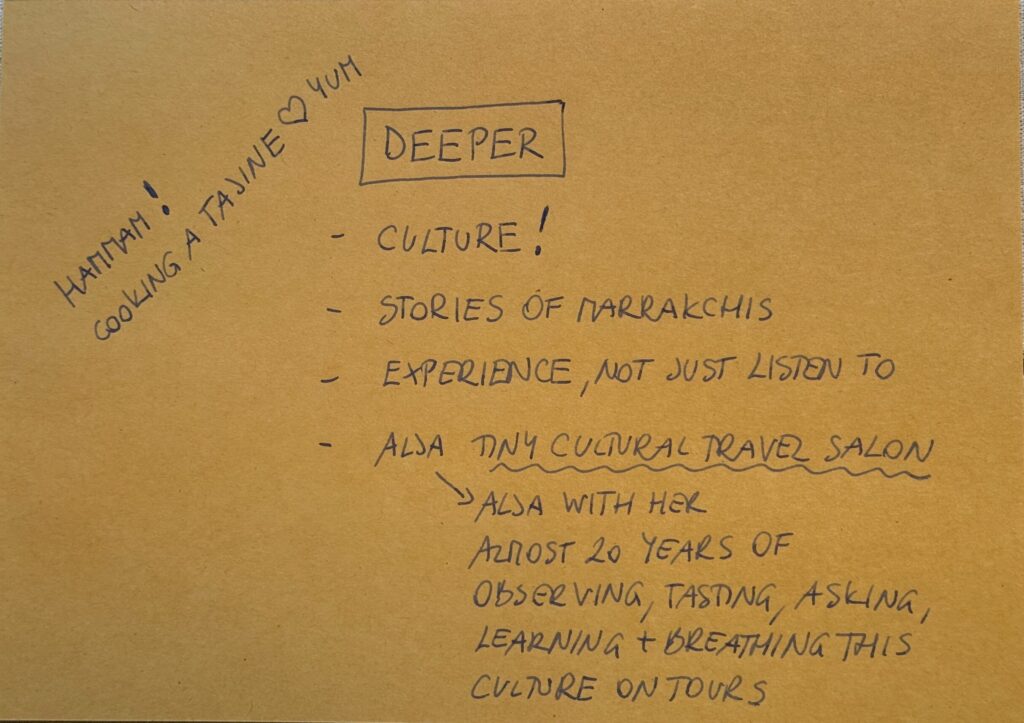 HAMMAM!
COOKING A TAJINE ♡ YUM
DEEPER
- CULTURE!
- STORIES OF MARRAKCHIS
- EXPERIENCE, NOT JUST LISTEN TO
- ALJA TINY CULTURAL TRAVEL SALON
→ ALJA WITH HER
ALMOST 20 YEARS OF
OBSERVING, TASTING, ASKING,
LEARNING + BREATHING THIS
CULTURE ON TOURS